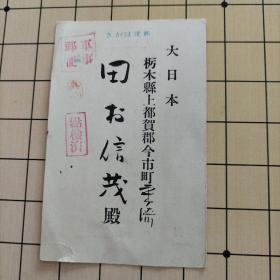 きがは便郵
軍事
郵便
大日本
栃木縣上都賀郡今市町
田お信茂殿